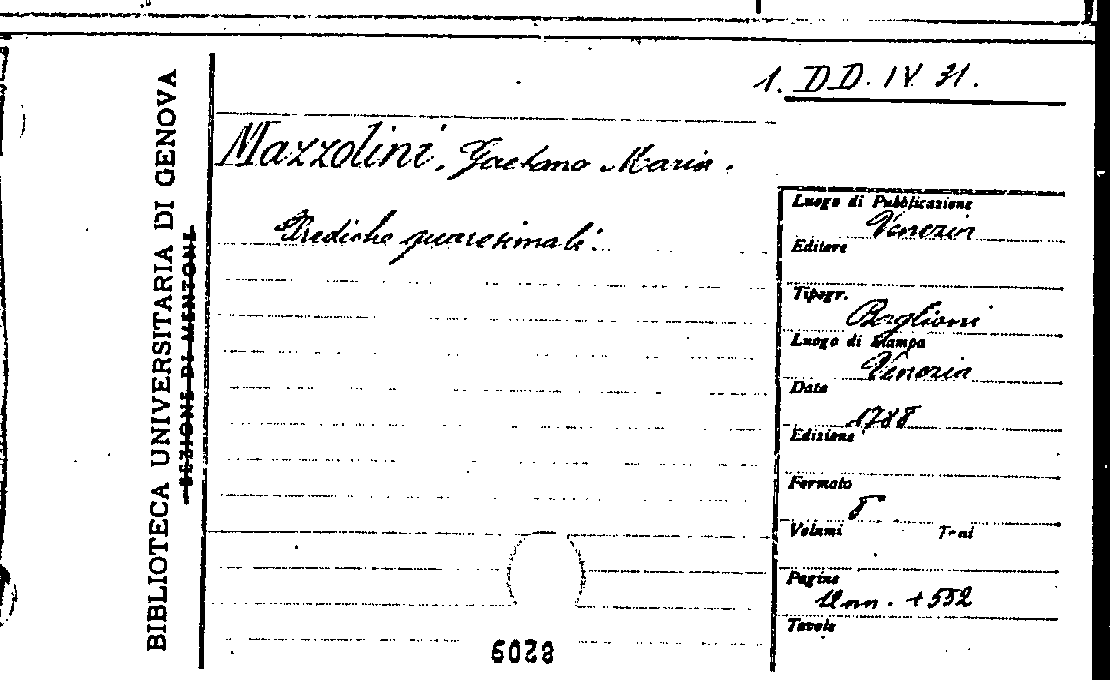 1. DD. IV. 31.
BIBLIOTECA UNIVERSITARIA DI GENOVA
SEZIONE DI MENTONE
Mazzolini, Gaetano Maria.
Prediche quaresimali.
Luogo di Pubblicazione
Venezia
Editore
Tipogr.
Baglioni
Luogo di Stampa
Venezia
Data
1788
Edizione
Formato
8
Volumi Tomi
Pagine
12 nn. + 552
Tavole
8209